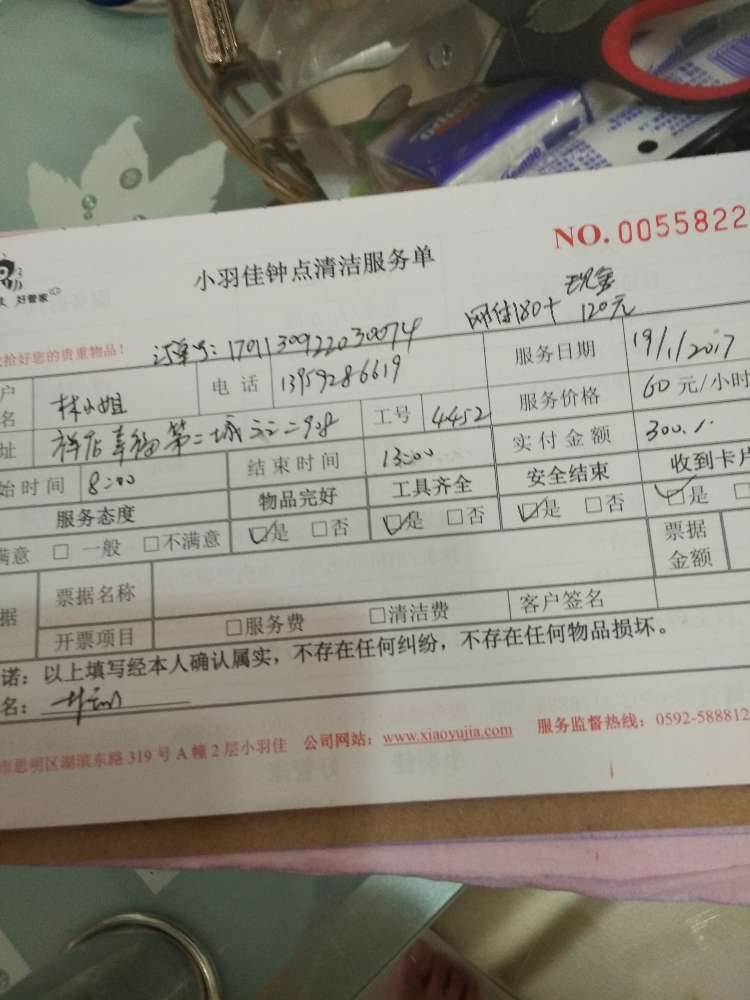 NO. 0055822
小羽佳钟点清洁服务单
好管家
拾好您的贵重物品！
订单号：1701130922030074
网付180+ 现金120元
林小姐
电话 13959286619
服务日期 19/1/2017
祥店幸福第二城
工号 4452
服务价格 60元/小时
始时间 8:00
结束时间 13:00
实付金额 300
服务态度
物品完好
工具齐全
安全结束
收到卡片
满意 □ 一般 □不满意 □是 □否 □是 □否 □是 □否 □是
票据名称
票据金额
开票项目 □服务费 □清洁费 客户签名
诺：以上填写经本人确认属实，不存在任何纠纷，不存在任何物品损坏。
名：
市思明区湖滨东路319号A幢2层小羽佳 公司网站：www.xiaoyujia.com 服务监督热线：0592-588812